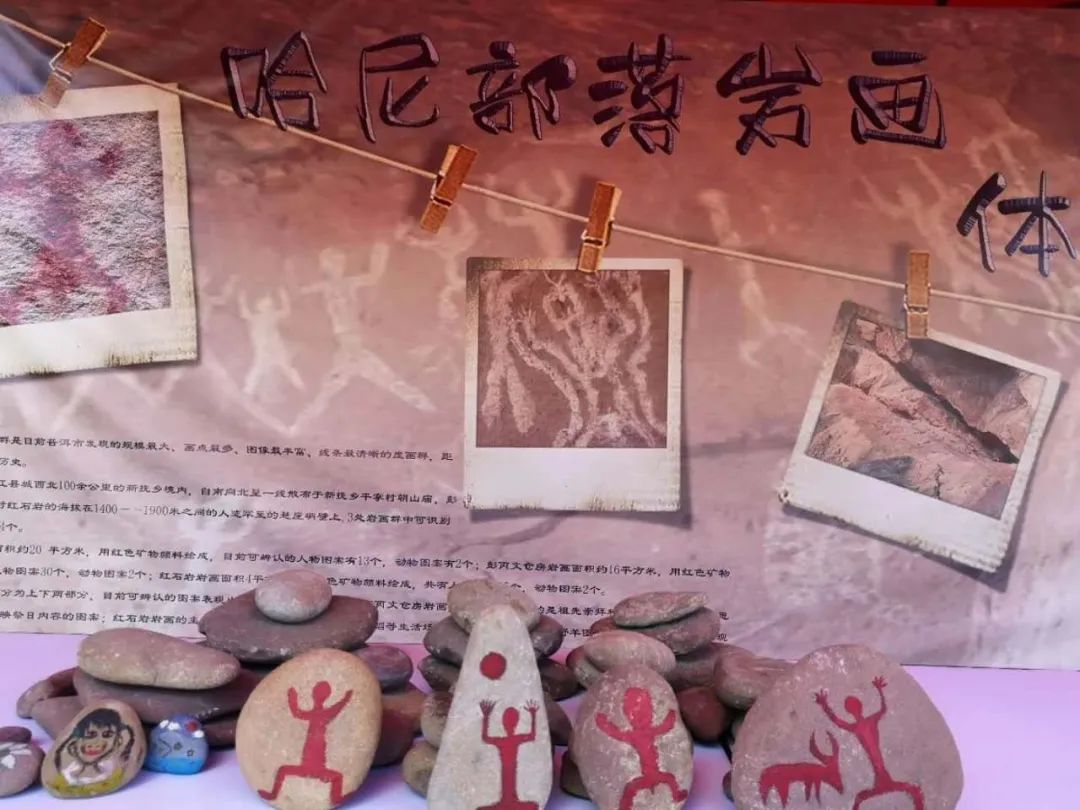 哈尼部落岩画
体
群是目前普洱市发现的规模最大、画点最多、图像最丰富、线条最清晰的崖画群，距
历史。
江县城西北100余公里的新抚乡境内，自南向北呈一线散布于新抚乡平寨村朝山庙，彭
村红石岩的海拔在1400——1900米之间的人迹罕至的悬崖峭壁上，3处岩画群中可识别
个。
面积约20 平方米，用红色矿物颜料绘成，目前可辨认的人物图案有13个，动物图案有2个；彭丙文仓房岩画面积约16平方米，用红色矿物
人物图案30个，动物图案2个；红石岩岩画面积4平 色矿物颜料绘成，共有 个，动物图案2个。
分为上下两部分，目前可辨认的图案表现 丙文仓房岩画 的是祖先崇拜
映祭日内容的图案；红石岩岩画的主 生活场